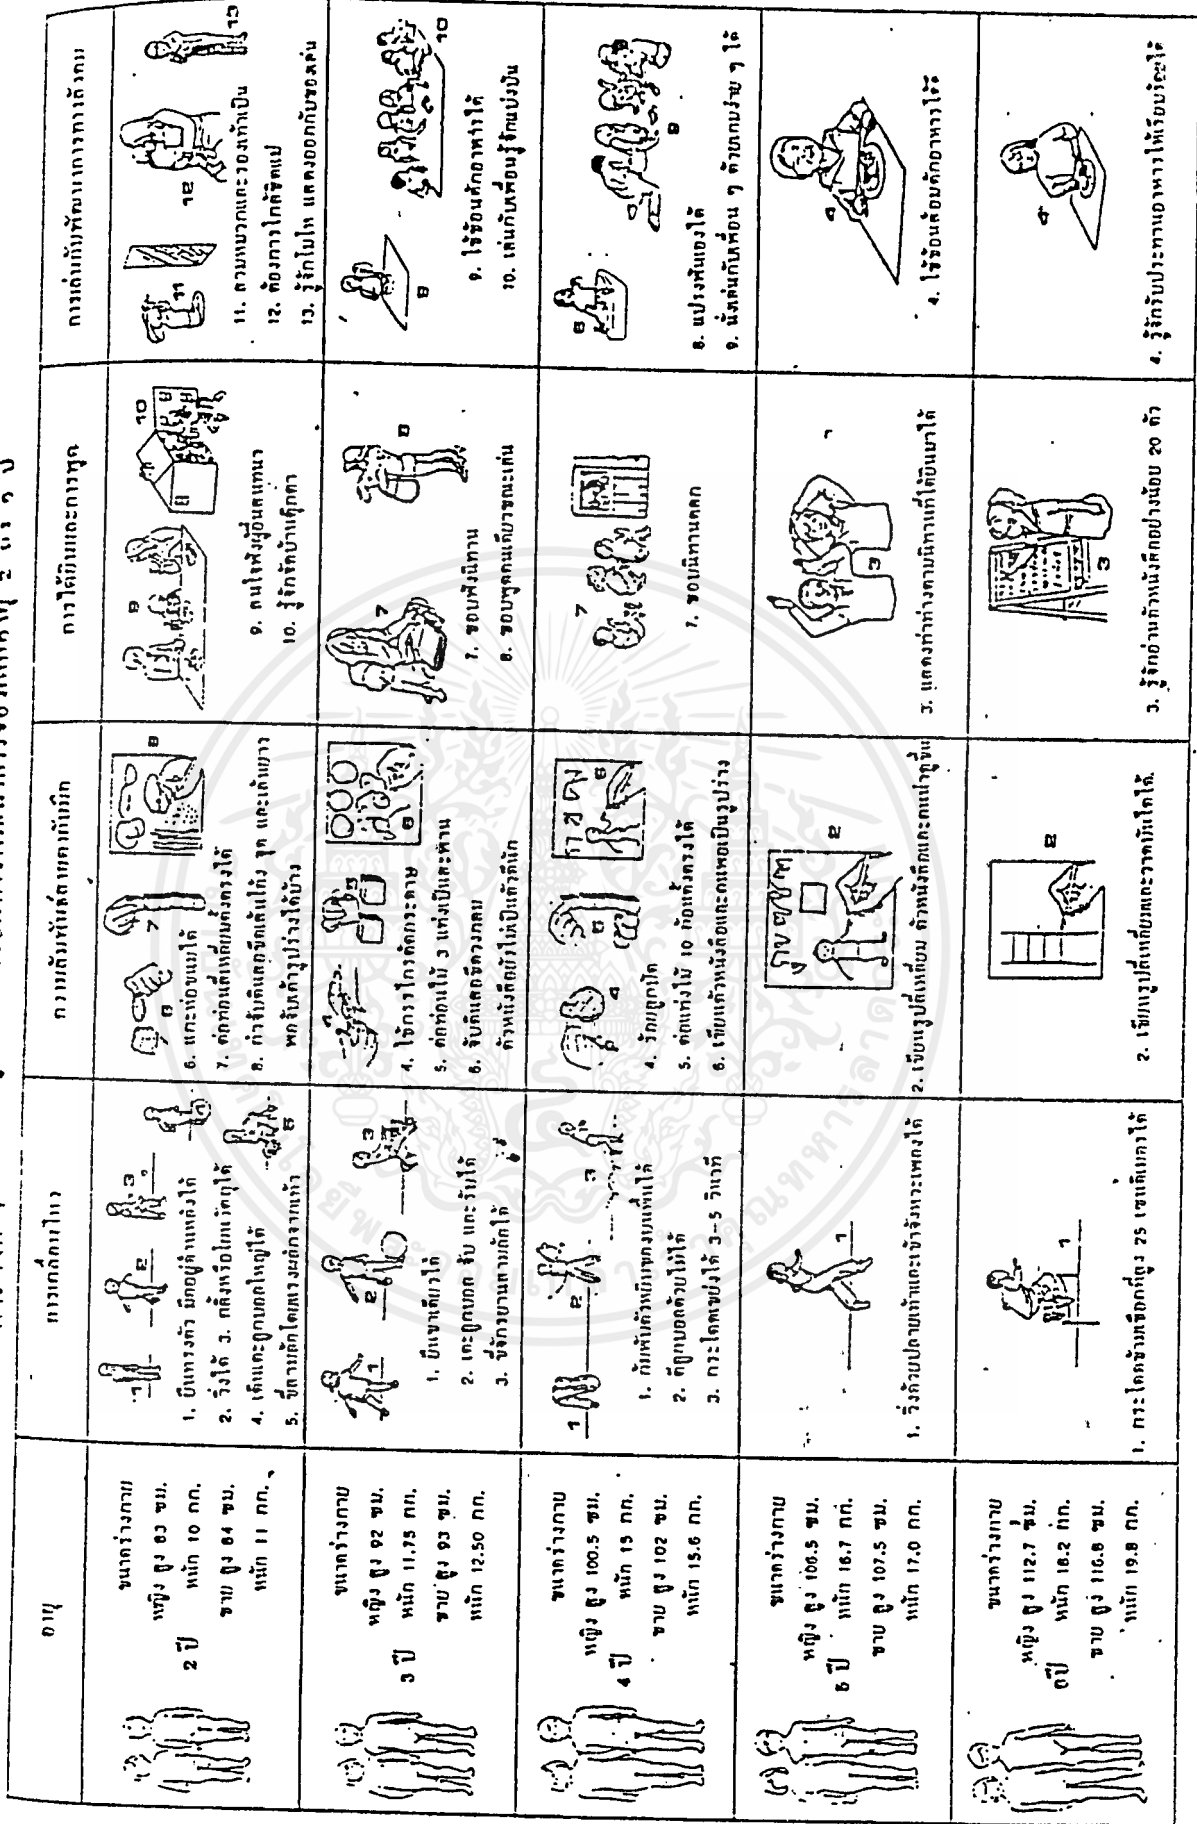 อายุ
การเคลื่อนไหว
ความสัมพันธ์สายตากับมือ
การได้ยินและการพูด
การเล่นกับพัฒนาการทางสังคม
2 ปี
ขนาดร่างกาย
หญิง สูง 83 ซม.
หนัก 10 กก.
ชาย สูง 84 ซม.
หนัก 11 กก.
1. ยืนทรงตัว
2. วิ่งได้ 3. กลิ้งหรือโยนวัตถุได้
4. เดินเตะลูกบอลใหญ่ได้
5. ขี่สามล้อโดยแรงผลักจากเท้า
6. แกะห่อขนมได้
7. ต่อท่อนสี่เหลี่ยมตั้งตรงได้
8. กำจับดินสอขีดเส้นโค้ง จุด และเส้นยาว
พอจับเค้ารูปร่างได้บ้าง
9. สนใจฟังผู้อื่นสนทนา
10. รู้จักจัดบ้านตุ๊กตา
11. สวมหมวกและรองเท้าเป็น
12. ต้องการใกล้ชิดแม่
13. รู้จักโมโห แสดงออกกับของเล่น
3 ปี
ขนาดร่างกาย
หญิง สูง 92 ซม.
หนัก 11.75 กก.
ชาย สูง 93 ซม.
หนัก 12.50 กก.
1. ยืนขาเดียวได้
2. เตะลูกบอล จับ และรับได้
3. ขี่จักรยานสามล้อได้
4. ใช้กรรไกรตัดกระดาษ
5. ต่อท่อนไม้ 3 แท่งเป็นสะพาน
6. จับดินสอขีดวงกลม
ตัวหนังสือยังไม่เป็นตัวดีนัก
7. ชอบฟังนิทาน
8. ชอบพูดคนเดียวขณะเล่น
9. ใช้ช้อนตักอาหารได้
10. เล่นกับเพื่อนรู้จักแบ่งปัน
4 ปี
ขนาดร่างกาย
หญิง สูง 100.5 ซม.
หนัก 15 กก.
ชาย สูง 102 ซม.
หนัก 15.6 กก.
1. ก้มพับตัวหยิบของบนพื้นได้
2. ตีลูกบอลด้วยไม้ได้
3. กระโดดเขย่งได้ 3-5 วินาที
4. ร้อยลูกปัด
5. ต่อแท่งไม้ 10 ก้อนตั้งตรงได้
6. เขียนตัวหนังสือและคนพอเป็นรูปร่าง
7. ชอบนิทานตลก
8. แปรงฟันเองได้
9. นั่งเล่นกับเพื่อน ๆ ด้วยเกมง่าย ๆ ได้
5 ปี
ขนาดร่างกาย
หญิง สูง 106.5 ซม.
หนัก 16.7 กก.
ชาย สูง 107.5 ซม.
หนัก 17.0 กก.
1. วิ่งด้วยปลายเท้าและเข้าจังหวะเพลงได้
2. เขียนรูปสี่เหลี่ยม ตัวหนังสือและคนน่าดูขึ้น
3. แสดงท่าทางตามนิทานที่ได้ยินมาได้
4. ใช้ช้อนส้อมตักอาหารได้
6 ปี
ขนาดร่างกาย
หญิง สูง 112.7 ซม.
หนัก 18.2 กก.
ชาย สูง 116.8 ซม.
หนัก 19.8 กก.
1. กระโดดข้ามเชือกที่สูง 25 เซนติเมตรได้
2. เขียนรูปสี่เหลี่ยมและวาดบันไดได้
3. รู้จักอ่านตัวหนังสืออย่างน้อย 20 ตัว
4. รู้จักรับประทานอาหารให้เรียบร้อยได้